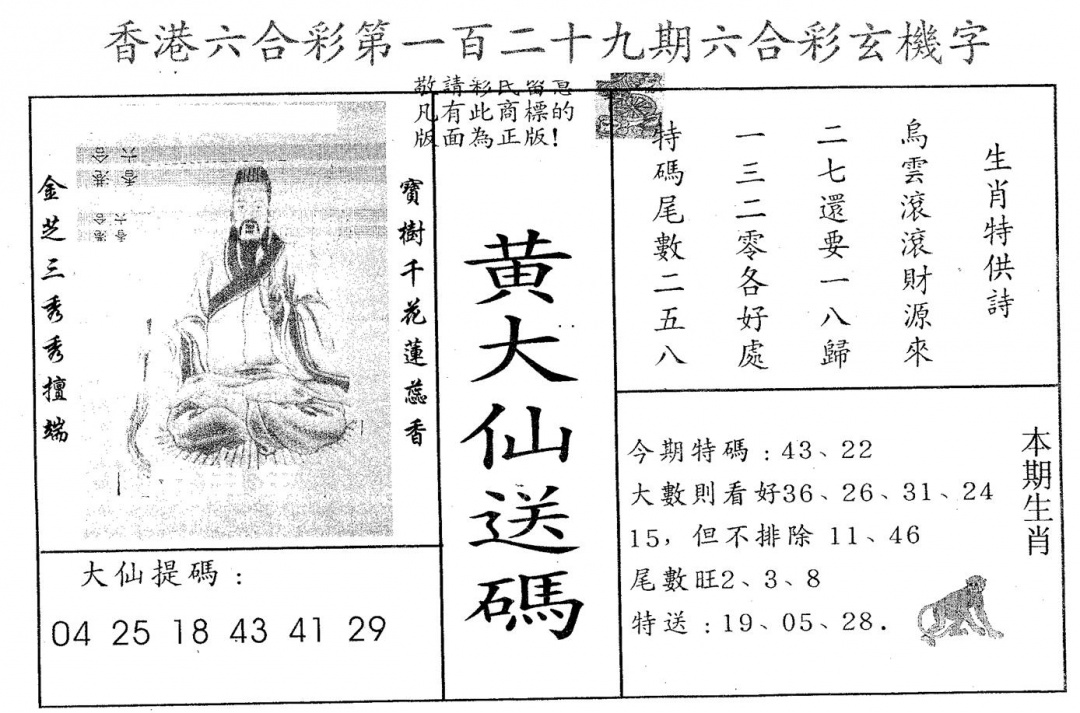 香港六合彩第一百二十九期六合彩玄機字
敬請彩民留意
凡有此商標的
版面為正版！
生肖特供詩
烏雲滾滾財源來
二七還要一八歸
一三二零各好處
特碼尾數二五八
黃大仙送碼
寶樹千花蓮蕊香
金芝三秀秀擅端
香港六合
香港六合
大仙提碼：
04 25 18 43 41 29
本期生肖
今期特碼：43、22
大數則看好36、26、31、24
15，但不排除 11、46
尾數旺2、3、8
特送：19、05、28.